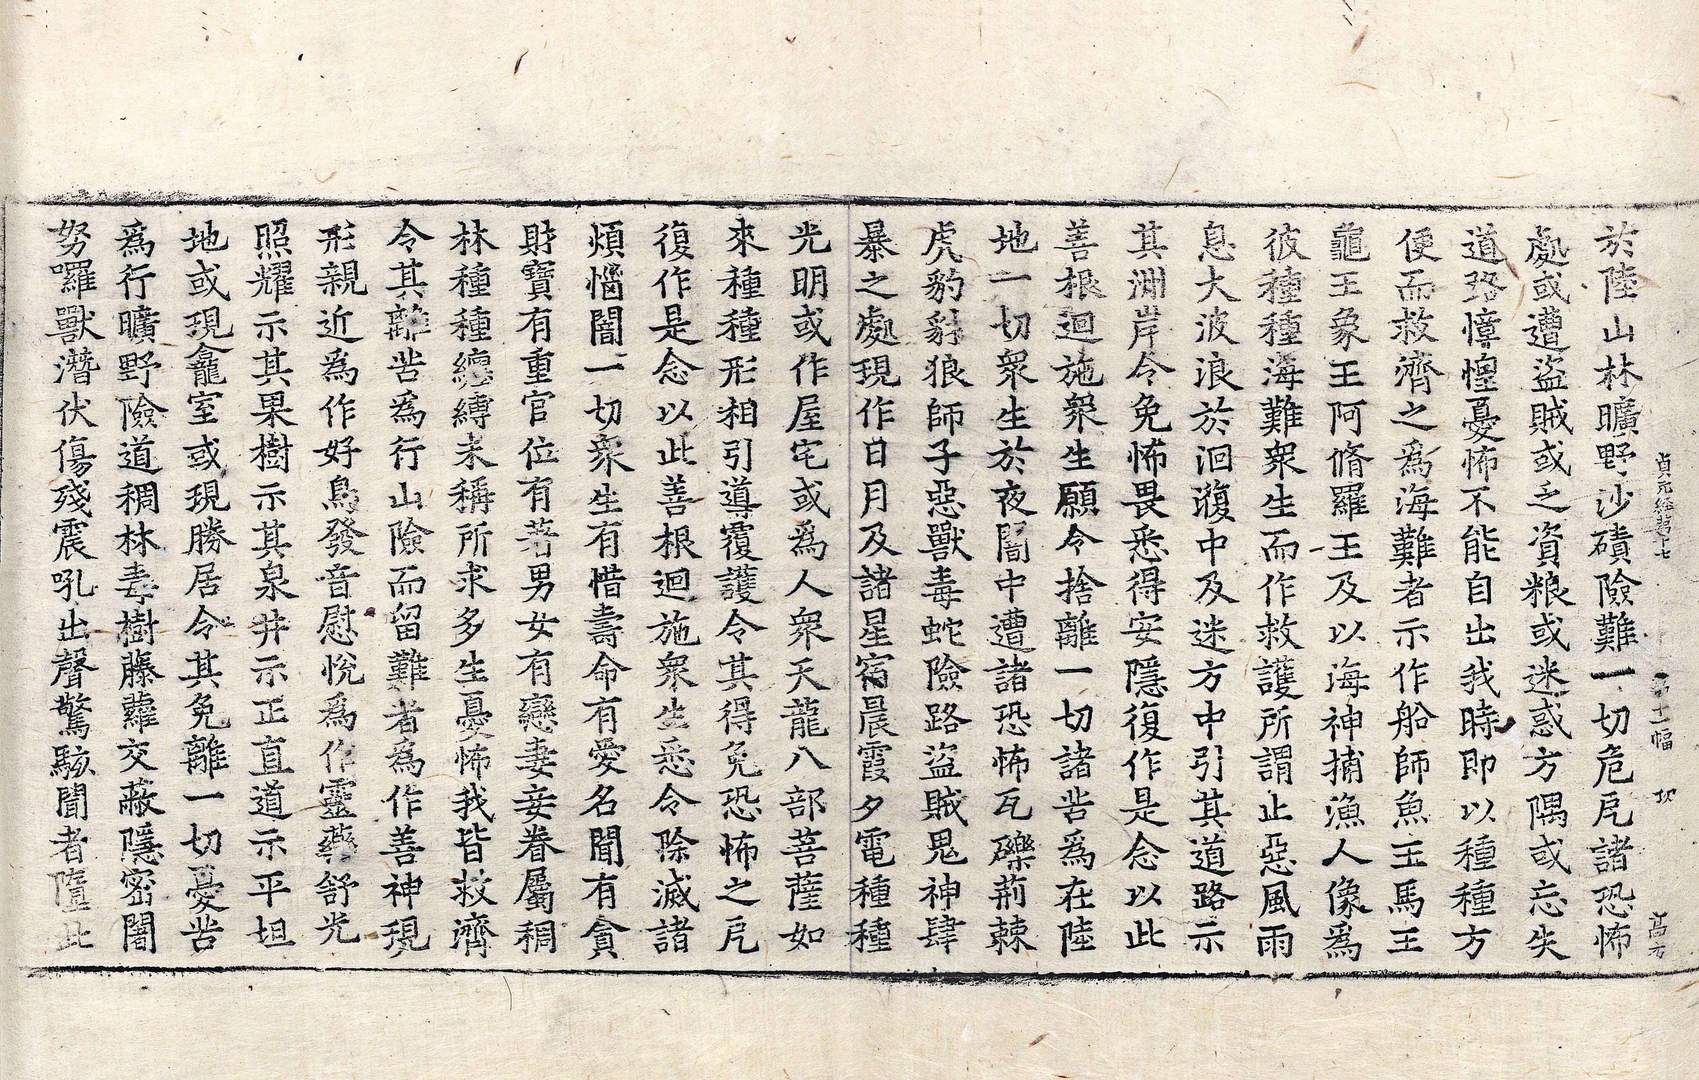 貞元經第十七 第十一幅 欽 萬方
於陸山林曠野沙磧險難一切危戹諸恐怖
處或遭盜賊或乏資粮或迷惑方隅或忘失
道路慞惶憂怖不能自出我時即以種種方
便而救濟之爲海難者示作船師魚王馬王
龜王象王阿脩羅王及以海神捕漁人像爲
彼種種海難衆生而作救護所謂止惡風雨
息大波浪於洄澓中及迷方中引其道路示
其洲岸令免怖畏悉得安隱復作是念以此
善根迴施衆生願令捨離一切諸苦爲在陸
地一切衆生於夜闇中遭諸恐怖瓦礫荊棘
虎豹豺狼師子惡獸毒蛇險路盜賊鬼神肆
暴之處現作日月及諸星宿晨霞夕電種種
光明或作屋宅或爲人衆天龍八部菩薩如
來種種形相引導覆護令其得免恐怖之戹
復作是念以此善根迴施衆生悉令除滅諸
煩惱闇一切衆生有惜壽命有愛名聞有貪
財寶有重官位有著男女有戀妻妾眷屬稠
林種種纏縛未稱所求多生憂怖我皆救濟
令其離苦爲行山險而留難者爲作善神現
形親近爲作好鳥發音慰悅爲作靈藥舒光
照耀示其果樹示其泉井示正直道示平坦
地或現龕室或現勝居令其免離一切憂苦
爲行曠野險道稠林毒樹藤蘿交蔽隱密闇
努囉獸潛伏傷殘震吼出聲驚駭聞者墮此